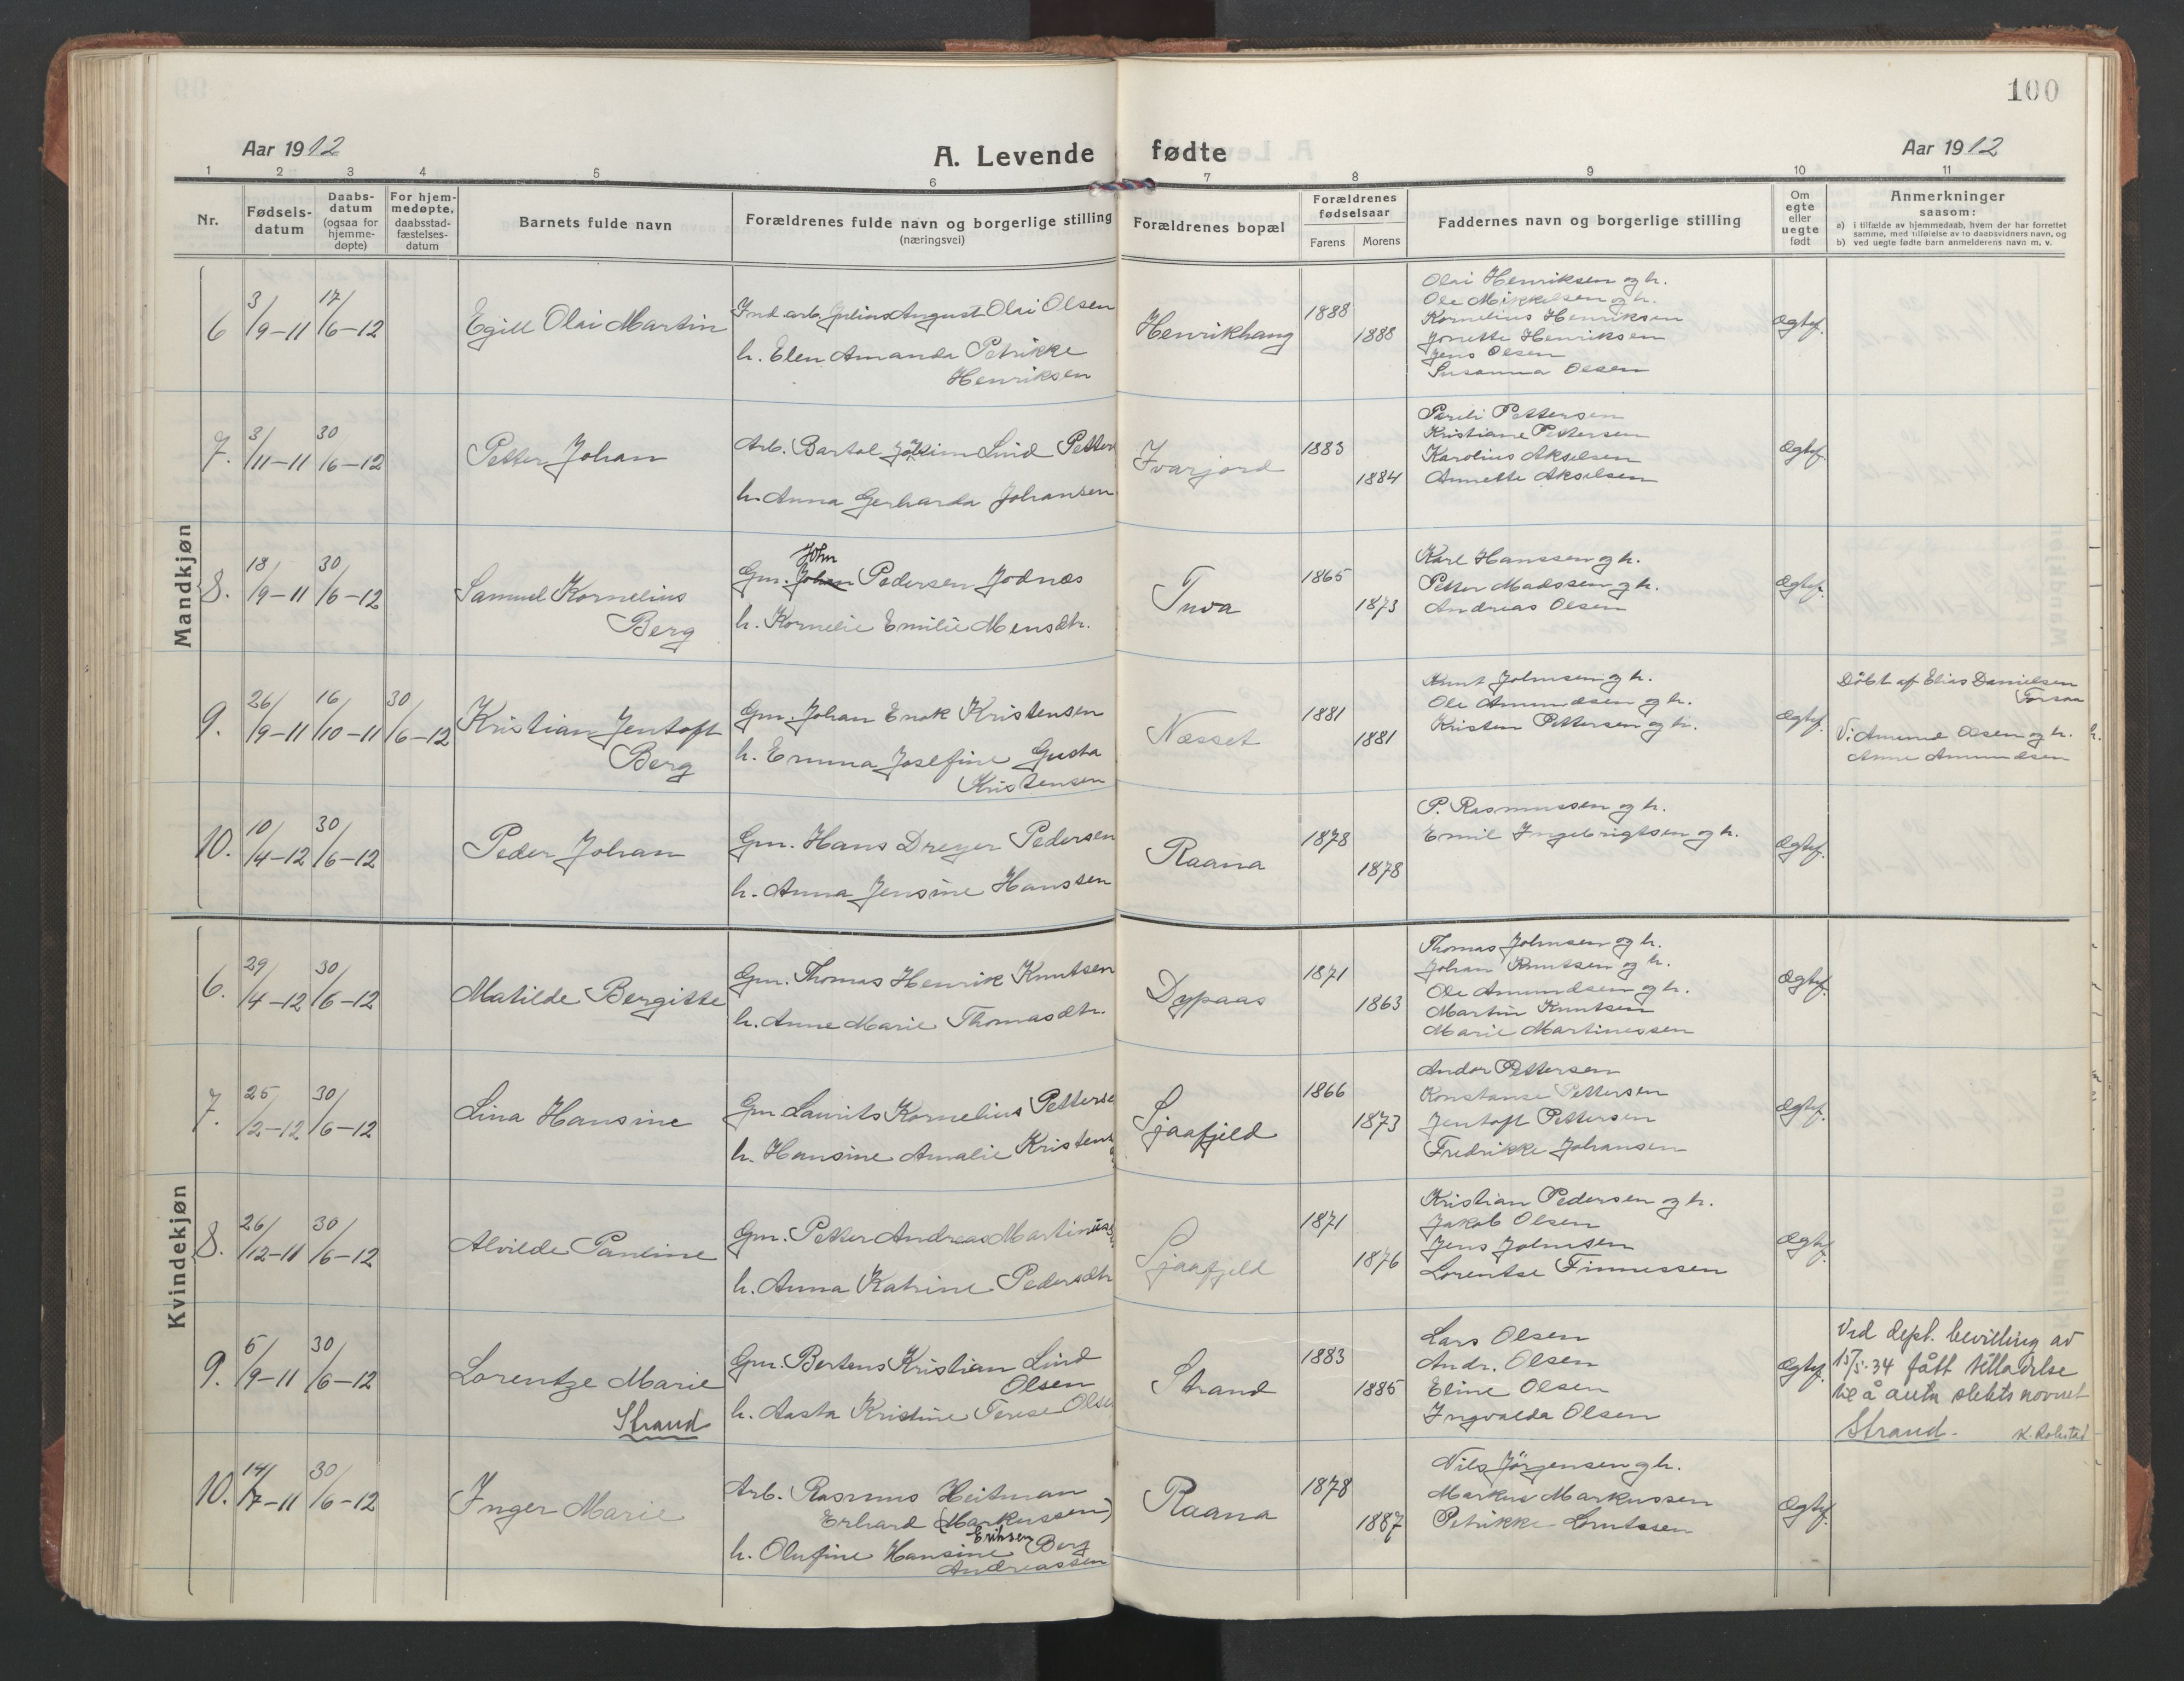 100
Aar 1912
A. Levende fødte
Aar 1912
1 2 3 4 5 6 7 8 9 10 11
Nr.
Fødsels-
datum
Daabs-
datum
(ogsaa for
hjemme-
døpte)
For hjem-
medøpte,
daabsstad-
fæstelses-
datum
Barnets fulde navn
Forældrenes fulde navn og borgerlige stilling
(næringsvei)
Forældrenes bopæl
Forældrenes
fødselsaar
Farens Morens
Faddernes navn og borgerlige stilling
Om
egte
eller
uegte
født
Anmerkninger
saasom:
a) i tilfælde av hjemmedaab, hvem der har forrettet
samme, med tilføielse av to daabsvidners navn, og
b) ved uegte fødte barn anmelderens navn m. v.
Mandkjøn
6
3/9-11
17/6-12
Egill Olai Martin
Ind. arb. Julius August Olai Olsen
h. Elen Amanda Petrikke
Henriksen
Henrikhang
1888
1888
Olai Henriksen og h.
Ole Mikkelsen og h.
Kornelius Henriksen
Jonette Henriksen
Jens Olsen
Susanna Olsen
Ægtef.
7.
3/11-11
30/6-12
Petter Johan
Arb. Bartol Jokim Lind Petter
h. Anna Gerharda Johansen
Ivarjord
1883
1884
Pareli Pettersen
Kristiane Pettersen
Karolius Akselsen
Annette Akselsen
Ægtef.
8.
18/9-11
30/6-12
Samuel Kornelius
Berg
John
Gm. Johan Pedersen Jodnæs
h. Kornelie Emilie Mensdtr.
Tuva
1865
1873
Karl Hanssen og h.
Petter Madssen og h.
Andreas Olsen
Ægtef.
9.
26/9-11
16/10-11
30/6-12
Kristian Jentoft
Berg
Gm. Johan Enok Kristensen
h. Emma Josefine Gusta
Kristensen
Næsset
1881
1881
Knut Johnsen og h.
Ole Amundsen og h.
Kristen Pettersen og h.
Ægtef.
Döbt af Elias Danielsen
Forsaa
V: Amund Olsen og h.
Anne Amundsen
10.
10/4-12
30/6-12
Peder Johan
Gm. Hans Dreyer Pedersen
h. Anna Jensine Hanssen
Raana
1878
1878
P. Rasmussen og h.
Emil Ingebrigtsen og h.
Ægtef.
Kvindekjøn
6.
29/4-12
30/6-12
Matilde Bergitte
Gm. Thomas Henrik Knutsen
h. Anne Marie Thomasdtr.
Dypaas
1871
1863
Thomas Johnsen og h.
Johan Knutsen og h.
Ole Amundsen og h.
Martin Knutsen
Marie Martinussen
Ægtef.
7.
25/2-12
30/6-12
Lina Hansine
Gm Laurits Kornelius Petterse
h. Hansine Amalie Kristens
Sjaafjeld
1866
1873
Andor Pettersen
Konstanse Pettersen
Jentoft Pettersen
Fredrikke Johansen
Ægtef.
8.
26/12-11
30/6-12
Alvilde Pauline
Gm. Petter Andreas Martinus
h. Anna Katrine Pedersdtr
Sjaafjeld
1871
1876
Kristian Pedersen og h.
Jakob Olsen
Jens Johnsen
Lorentse Finnessen
Ægtef.
9.
5/9-11
30/6-12
Lorentze Marie
Strand
Gm. Bertens Kristian Lind
Olsen
h. Aasta Kristine Terese Olse
Strand
1883
1885
Lars Olsen
Andr. Olsen
Eline Olsen
Ingvalda Olsen
Ægtef.
Ved dept. bevilling av
15/5-34 fått tilladelse
til å anta slektsnavnet
Strand.
10.
14/7-11
30/6-12
Inger Marie
Arb. Rasmus Heitman
Erhard (Markussen)
Eriksen
h. Olufine Hansine Berg
Andreassen
Raana
1878
1887
Nils Jörgensen og h.
Markus Markussen
Petrikke Lorntssen
Ægtef.